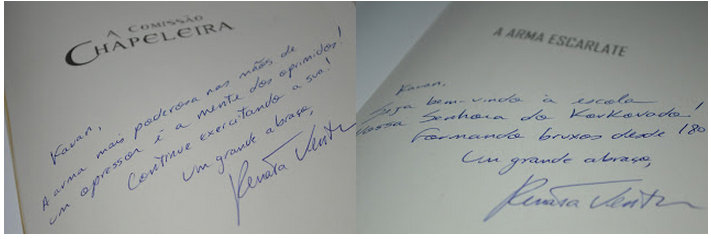 A COMISSÃO
CHAPELEIRA
Kavan,
A arma mais poderosa nas mãos de
um opressor é a mente dos oprimidos!
Continue exercitando a sua!
Um grande abraço,
Renata Ventu
A ARMA ESCARLATE
Kavan,
Seja bem-vindo à escola
Nossa Senhora do Korkovado!
Formando bruxos desde 180
Um grande abraço,
Renata Ventu